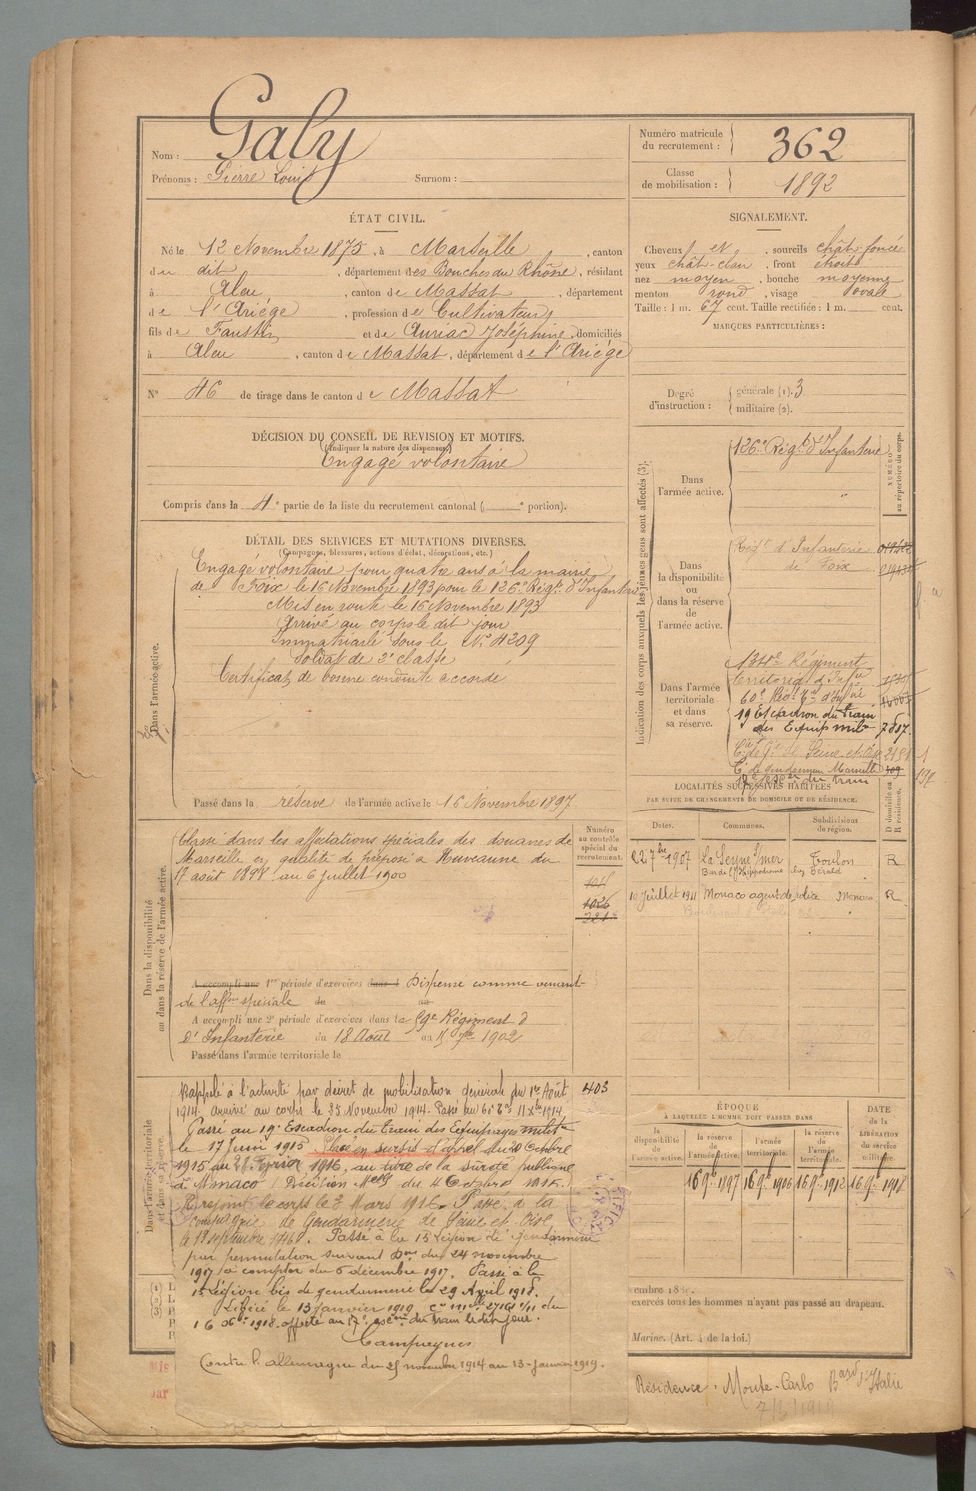 Nom : Galy
Prénoms : Pierre Louis Surnom :
Numéro matricule du recrutement : 362
Classe de mobilisation : 1892
ÉTAT CIVIL.
Né le 12 Novembre 1875, à Marseille, canton
du dit, département des Bouches du Rhône, résidant
à Aleu, canton de Massat, département
de l'Ariège, profession de Cultivateur
fils de Faustin et de Auriac Joséphine, domiciliés
à Aleu, canton de Massat, département de l'Ariège
N° 46 de tirage dans le canton de Massat
DÉCISION DU CONSEIL DE REVISION ET MOTIFS.
(Indiquer la nature des dispenses)
Engagé volontaire
Compris dans la 4e partie de la liste du recrutement cantonal ( e portion).
SIGNALEMENT.
Cheveux et, sourcils chât. foncé
yeux chât. clair, front étroit
nez moyen, bouche moyenne
menton rond, visage ovale
Taille : 1 m. 67 cent. Taille rectifiée : 1 m. cent.
MARQUES PARTICULIÈRES :
Degré d'instruction : générale (1). 3
militaire (2).
DÉTAIL DES SERVICES ET MUTATIONS DIVERSES.
(Campagnes, blessures, actions d'éclat, décorations, etc.)
Dans l'armée active.
Engagé volontaire pour quatre ans à la mairie
de Foix le 16 Novembre 1893 pour le 126e Régt d'Infanterie
Mis en route le 16 Novembre 1893
Arrivé au corps le dit jour
Immatriculé sous le N° 4209
Soldat de 2e classe
Certificat de bonne conduite accordé
Passé dans la réserve de l'armée active le 16 Novembre 1897
Dans la disponibilité ou dans la réserve de l'armée active.
Classé dans les affectations spéciales des douanes de
Marseille en qualité de préposé à Huveaune du
17 août 1898 au 6 juillet 1900
Numéro au contrôle spécial du recrutement.
A accompli une 1re période d'exercices dans l Dispensé comme venant
de l'affon spéciale du au
A accompli une 2e période d'exercices dans le 59e Régiment d
d'Infanterie du 18 Août au 1902
Passé dans l'armée territoriale le
Dans l'armée territoriale et dans sa réserve.
Rappelé à l'activité par décret de mobilisation générale du 1er Août 403
1914. Arrivé au corps le 25 Novembre 1914. Passé au 60e Tal 11 Xbre 1914
Passé au 19e Escadron du train des Equipages militre
le 17 Juin 1915 Placé en sursis d'appel du Octobre
1915 au Février 1916, au titre de la sûreté publique
à Monaco (Décision Melle du 4 Octobre 1915)
Rejoint le corps le 3 Mars 1916. Passé à la
Compagnie de Gendarmerie de Seine et Oise
le septembre 1916. Passé à la 15 Légion de gendarmerie
par permutation suivant Don du 24 novembre
1917 à compter du 6 décembre 1917. Passé à la
15e Légion bis de gendarmerie le 29 Avril 1918.
Libéré le 13 janvier 1919
1918. affecté au du train le dit jour.
Campagnes
Contre l'allemagne du 25 novembre 1914 au 13 janvier 1919.
Indication des corps auxquels les jeunes gens sont affectés (3).
NUMÉRO au répertoire du corps.
Dans l'armée active.
126e Régt d'Infanterie
Dans la disponibilité ou dans la réserve de l'armée active.
Régt d'Infanterie
de Foix
Dans l'armée territoriale et dans sa réserve.
134e Régiment
territorial d'Infie
60e Régt Tal d'Infie
19 Escadron du train
des Equip mil. 7817
de Seine et Oise
Cie de gendarmerie Marseille
du train
LOCALITÉS SUCCESSIVES HABITÉES
PAR SUITE DE CHANGEMENTS DE DOMICILE OU DE RÉSIDENCE.
Dates. Communes. Subdivisions de région. D domicile ou R résidence.
22 7bre 1907 La Seyne s/mer Toulon R
10 Juillet 1911 Monaco agent de police Monaco R
ÉPOQUE
À LAQUELLE L'HOMME DOIT PASSER DANS
la disponibilité de l'armée active. la réserve de l'armée active. l'armée territoriale. la réserve de l'armée territoriale. DATE de la LIBÉRATION du service militaire.
16 9bre 1897 16 9bre 1906 16 9bre 1912 16 9bre 1918
exercés tous les hommes n'ayant pas passé au drapeau.
Marine. (Art. 4 de la loi.)
Résidence : Monte-Carlo Bard d'Italie
7/3/1919